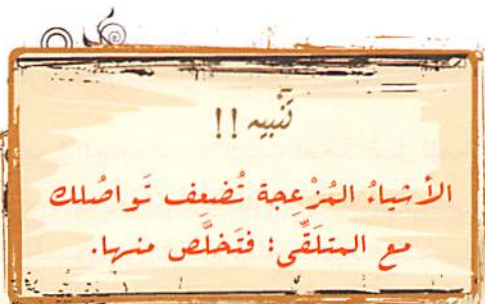 تَنْبيه !!
الأشياءُ المُزْعِجة تُضعِف تَواصُلك
مع المتلَقِّي؛ فتَخلَّص منها.